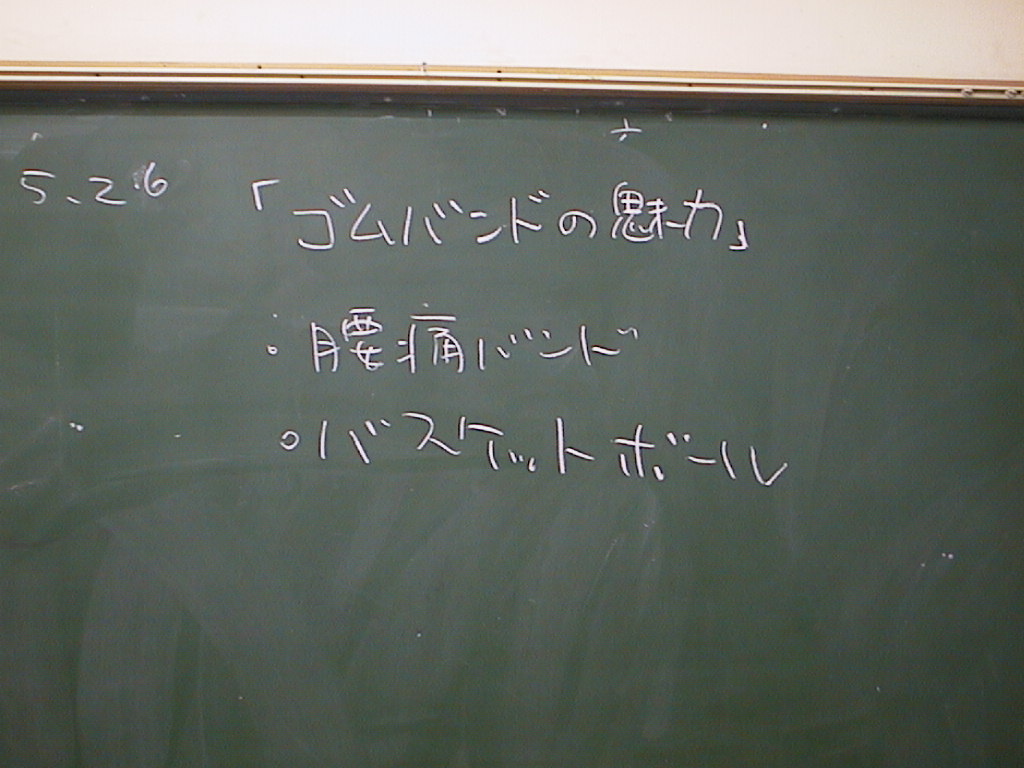 5.26 「ゴムバンドの魅力」
・腰痛バンド
○バスケットボール